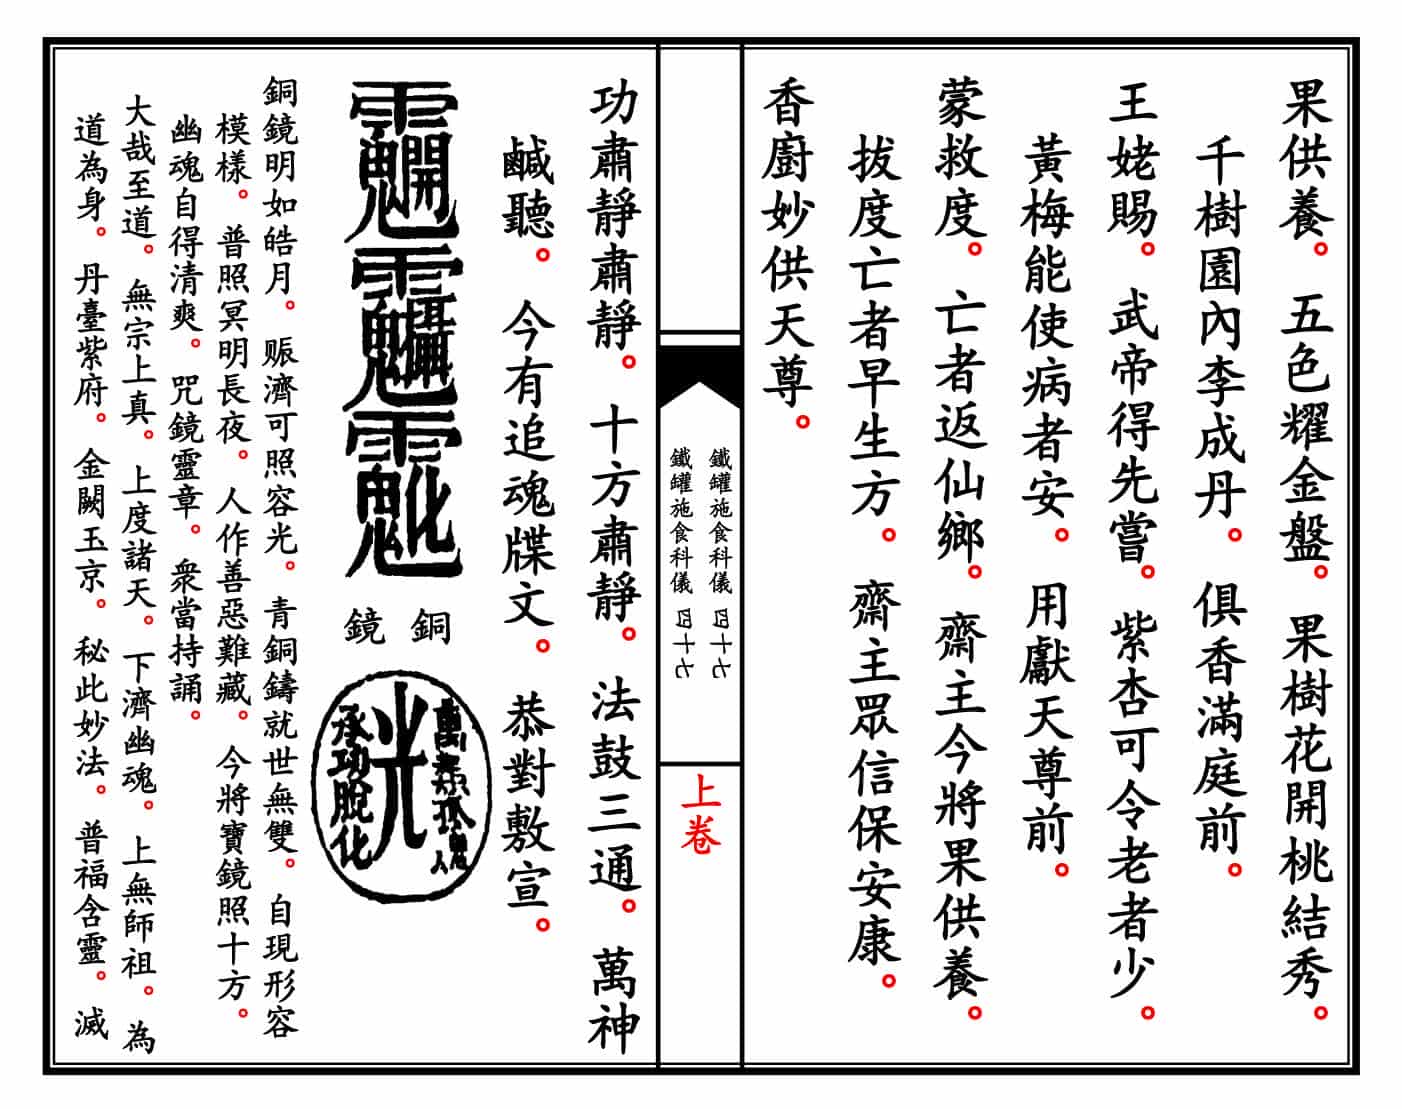 果供養。 五色耀金盤。 果樹花開桃結秀。
千樹園內李成丹。 俱香滿庭前。
王姥賜。 武帝得先嘗。 紫杏可令老者少。
黃梅能使病者安。 用獻天尊前。
蒙救度。 亡者返仙鄉。 齋主今將果供養。
拔度亡者早生方。 齋主眾信保安康。
香廚妙供天尊。
鐵罐施食科儀 四十七
鐵罐施食科儀 四十七
上卷
功肅靜肅靜。 十方肅靜。 法鼓三通。 萬神
鹹聽。 今有追魂牒文。 恭對敷宣。
銅鏡
光
承功脫化
銅鏡明如皓月。 賑濟可照容光。 青銅鑄就世無雙。 自現形容
模樣。 普照冥明長夜。 人作善惡難藏。 今將寶鏡照十方。
幽魂自得清爽。 咒鏡靈章。 衆當持誦。
大哉至道。 無宗上真。 上度諸天。 下濟幽魂。 上無師祖。 為
道為身。 丹臺紫府。 金闕玉京。 秘此妙法。 普福含靈。 滅